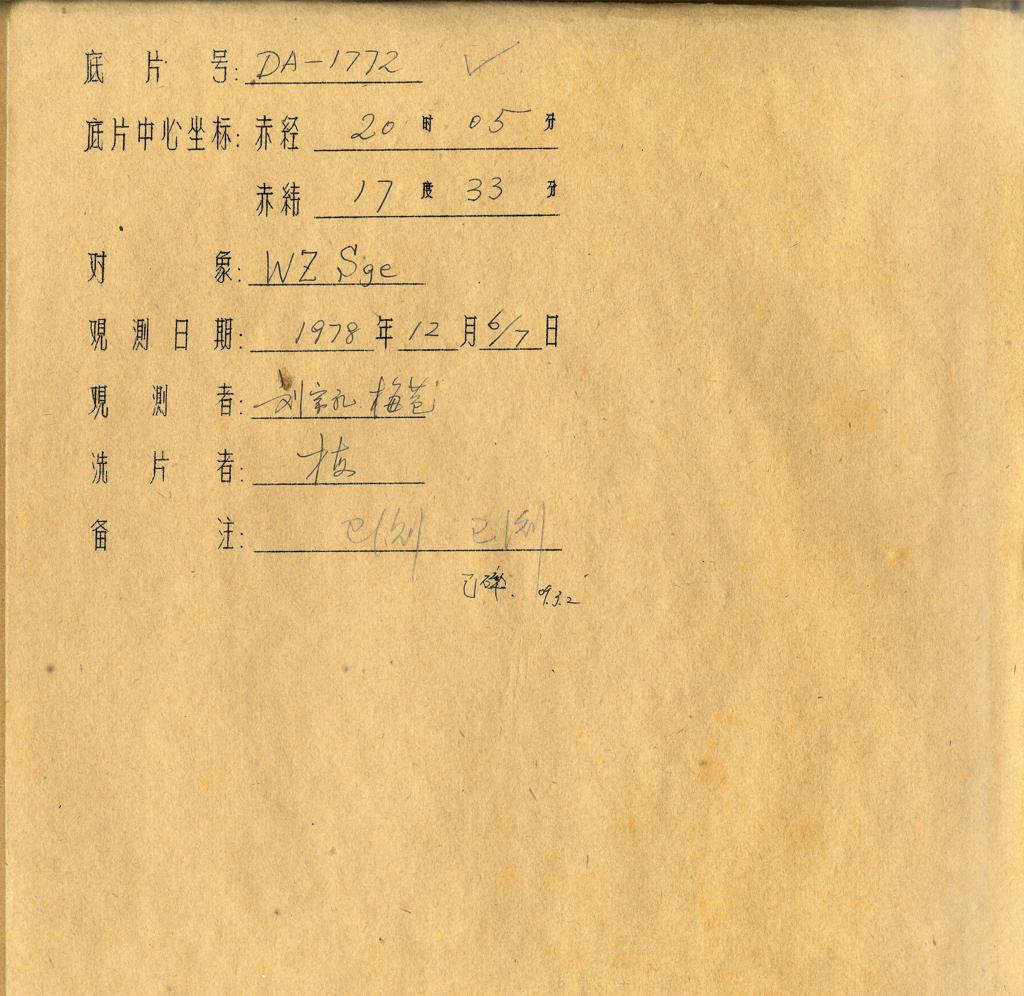 底片号: DA-1772 ✓
底片中心坐标: 赤经 20时 05分
赤纬 17度 33分
对象: WZ Sge
观测日期: 1978年12月6/7日
观测者: 刘宗礼 梅苞
洗片者:
备注: 已测 已测
已确. 09.3.2